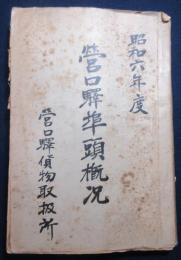 昭和六年度
営口驛埠頭概况
営口驛貨物取扱所